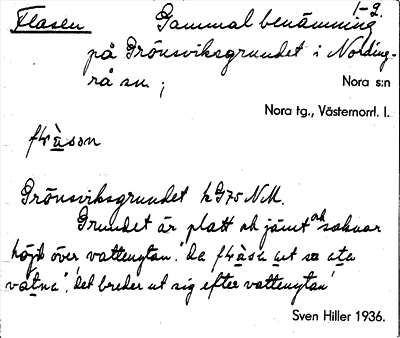 Flasen Gammal benämning 1-2.
på Grönsviksgrundet i Nording-
rå sn. ;
Nora s:n
Nora tg., Västernorrl. l.
Grönsviksgrundet k G75 NM.
Grundet är platt och jämt och saknar
höjd över vattenytan.
vatnə", 'det breder ut sig efter vattenytan'
Sven Hiller 1936.